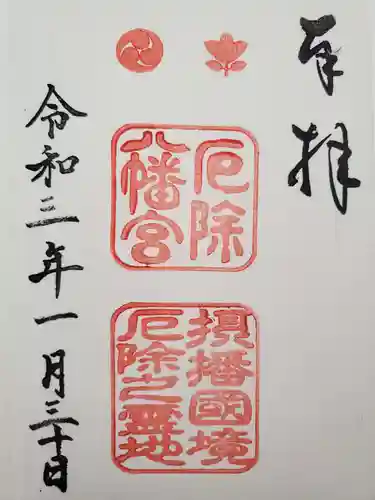 奉拝
厄除
八幡宮
摂播國境
厄除之霊地
令和三年一月三十日